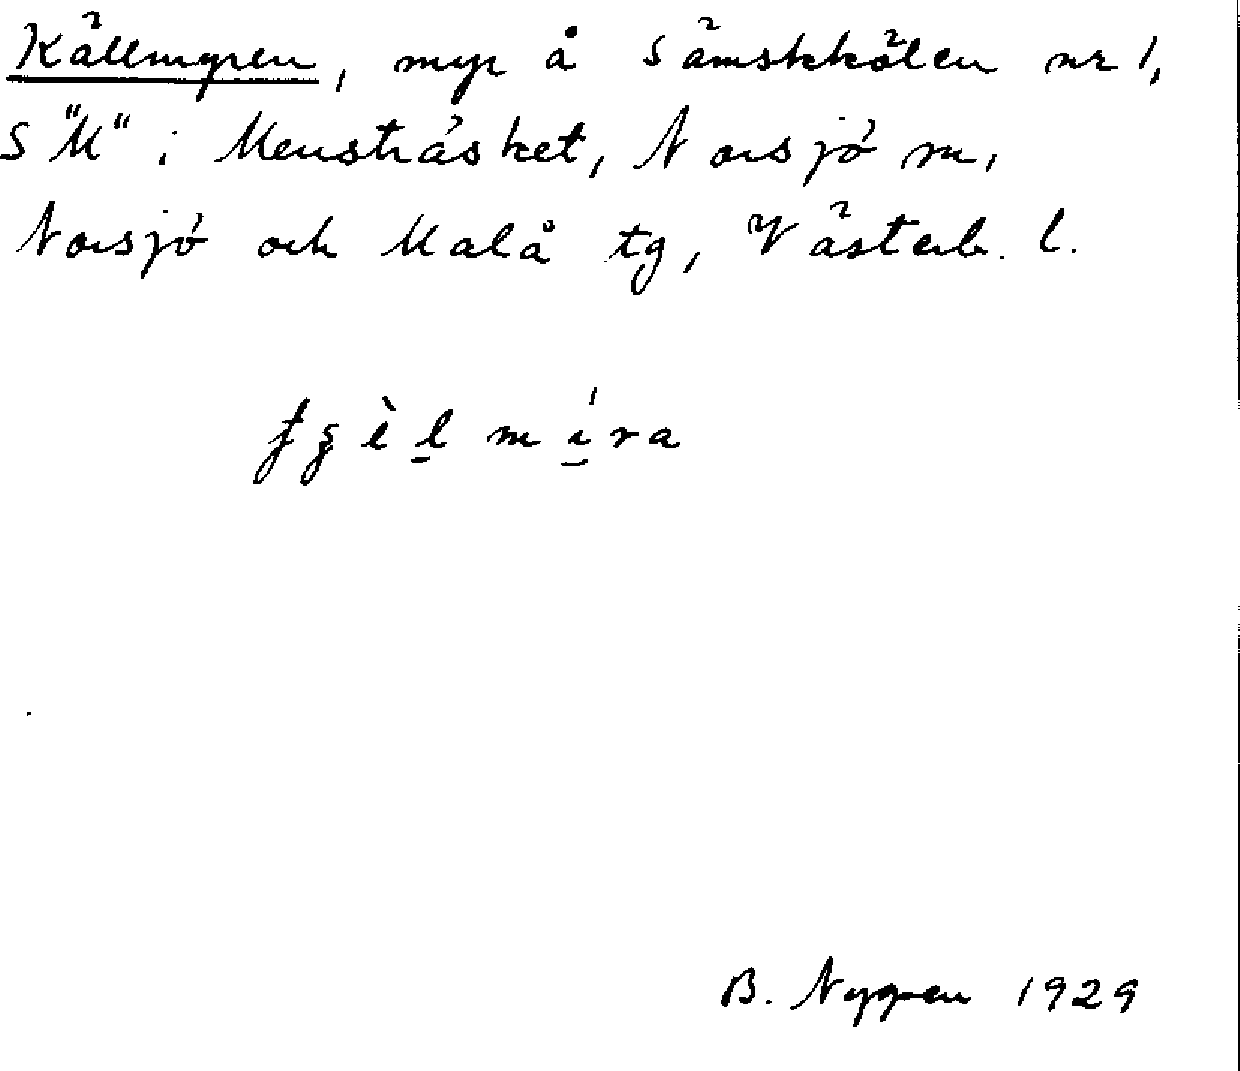 Källmyren, myr å Sämskkölen nr 1,
S "M" i Mensträsket, Norsjö sn,
Norsjö och Malå tg, Västerb. l.
B. Nygren 1929